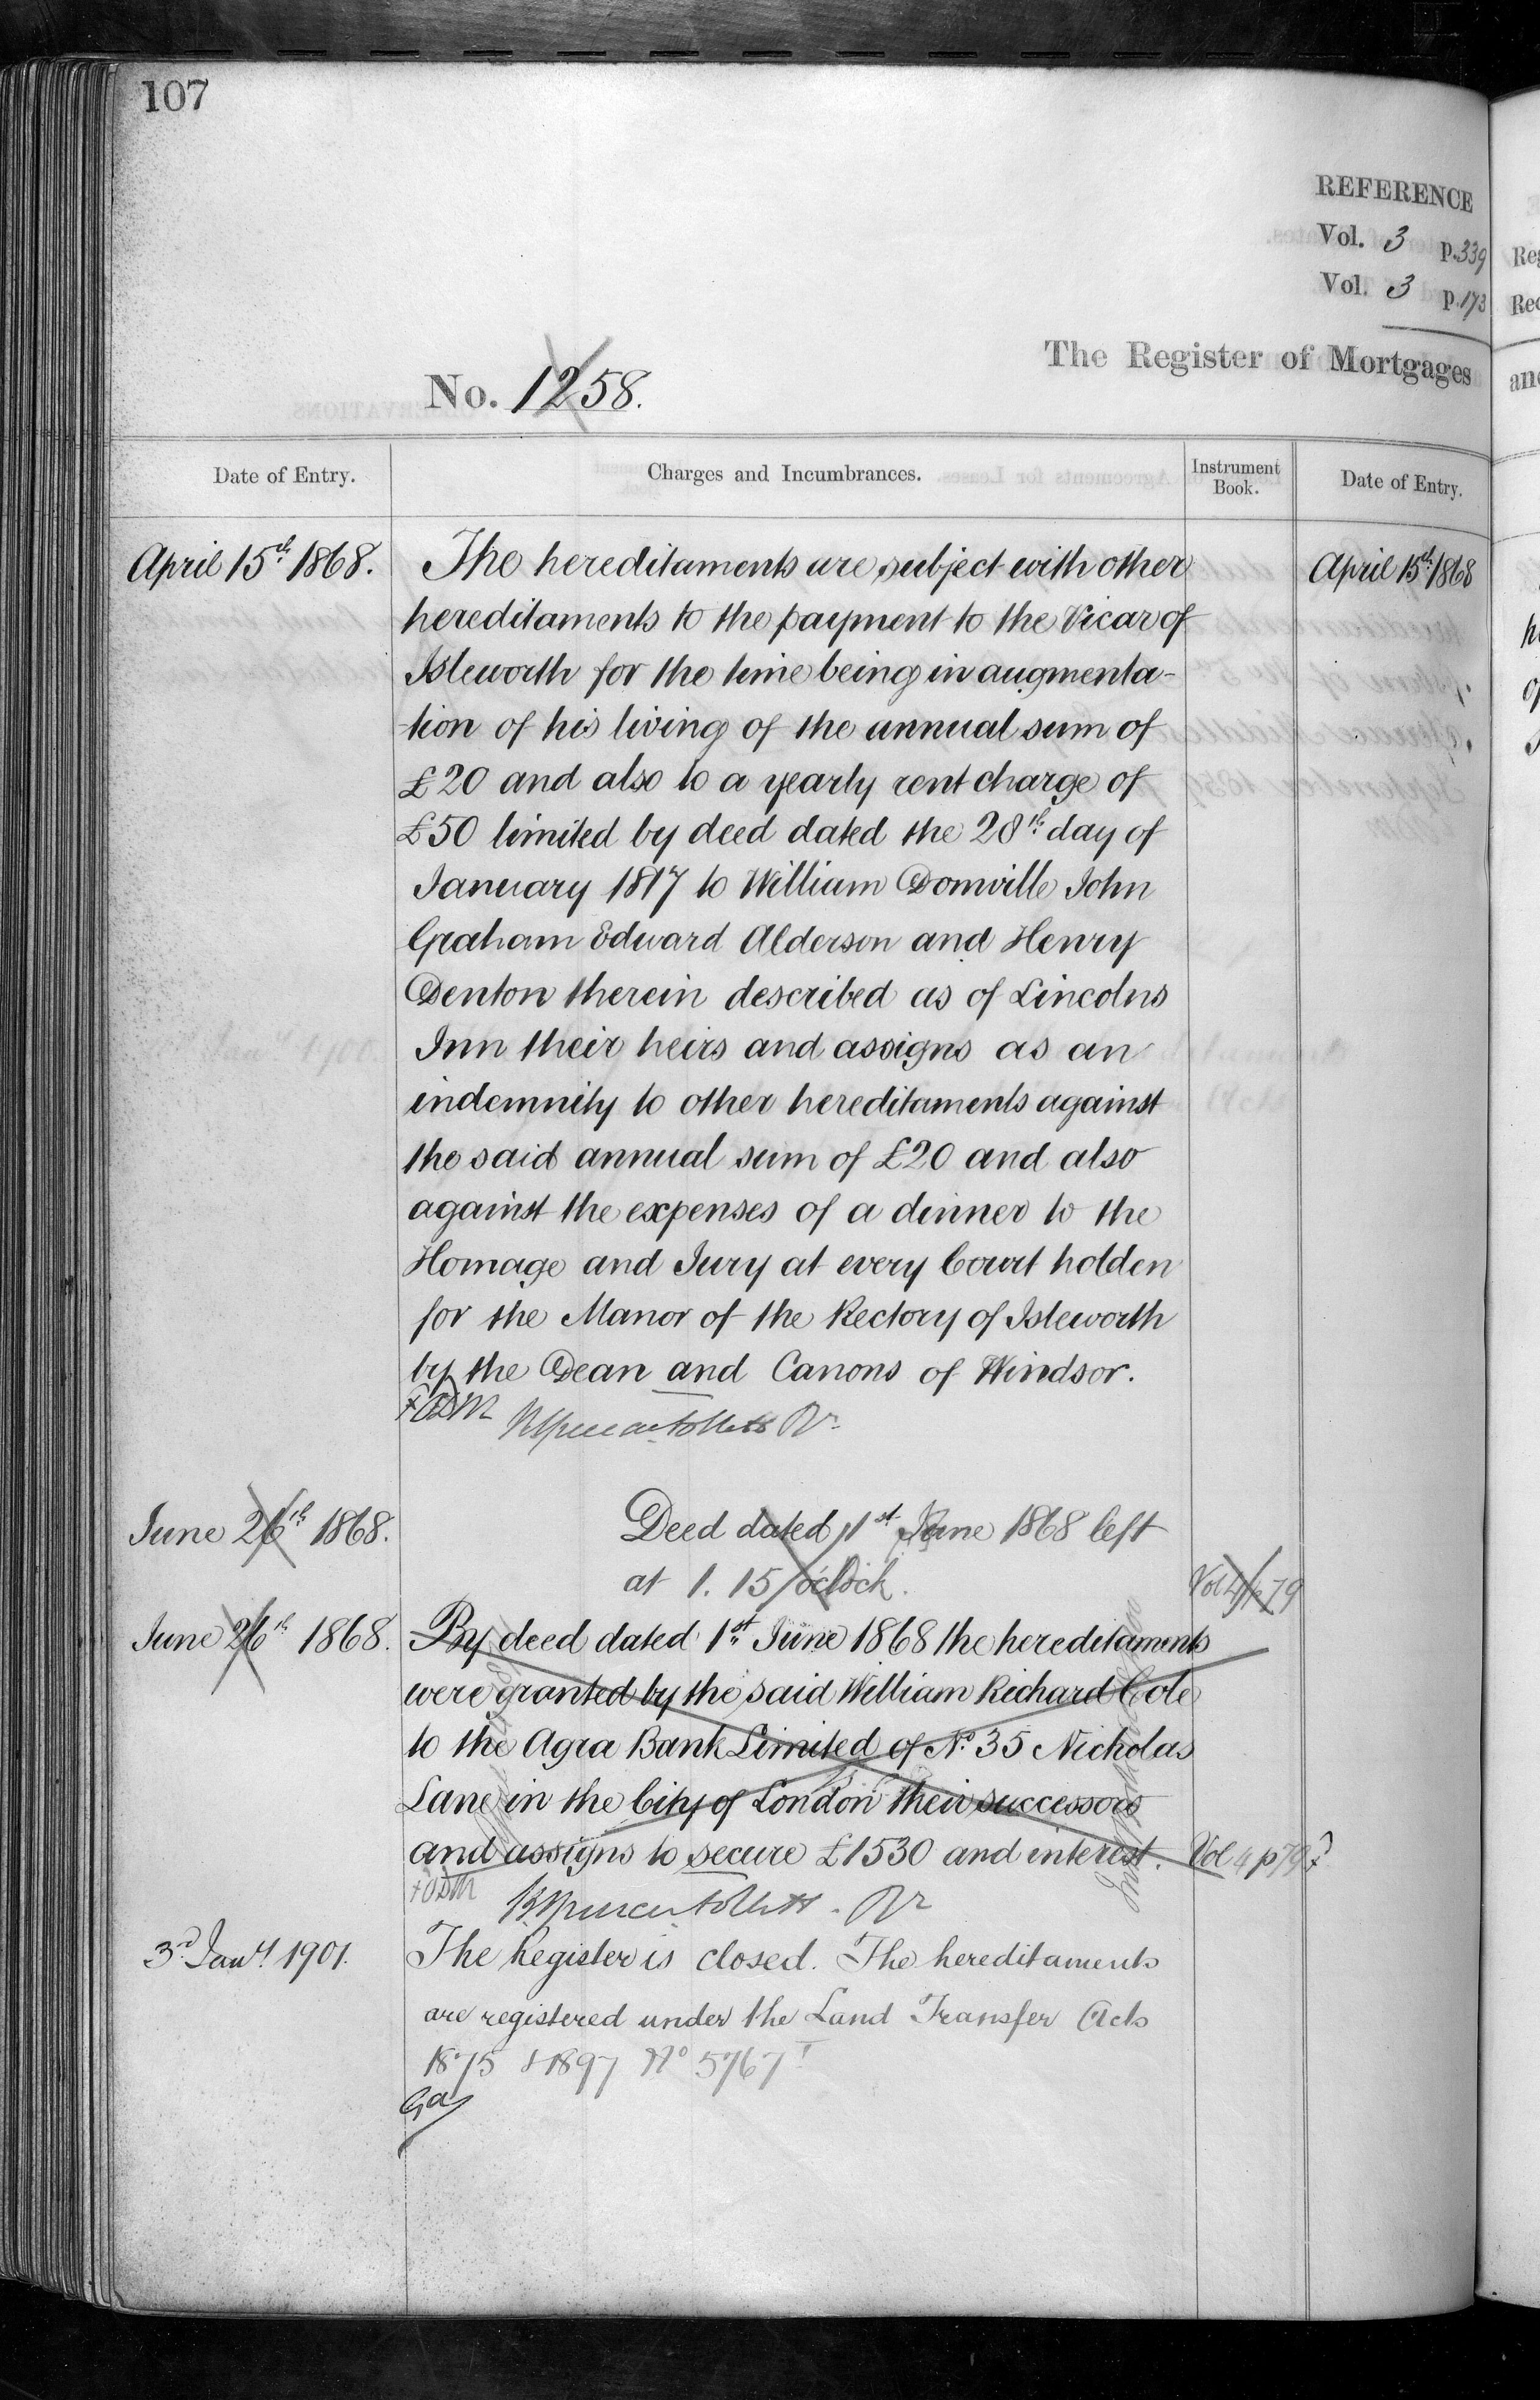 107
REFERENCE
Vol. 3 p.339
Vol. 3 p.173
The Register of Mortgages
No. 1258.
Date of Entry.
Charges and Incumbrances.
Instrument Book.
Date of Entry.
April 15th 1868.
April 15th 1868
The hereditaments are subject with other
hereditaments to the payment to the Vicar of
Isleworth for the time being in augmenta-
-tion of his living of the annual sum of
£20 and also to a yearly rent charge of
£50 limited by deed dated the 28th day of
January 1817 to William Domville John
Graham Edward Alderson and Henry
Denton therein described as of Lincolns
Inn their heirs and assigns as an
indemnity to other hereditaments against
the said annual sum of £20 and also
against the expenses of a dinner to the
Homage and Jury at every Court holden
for the Manor of the Rectory of Isleworth
by the Dean and Canons of Windsor.
June 26th 1868.
Deed dated 1st June 1868 left
at 1.15 o'clock.
Vol 4 p 79
June 26th 1868.
By deed dated 1st June 1868 the hereditaments
were granted by the said William Richard Cole
to the Agra Bank Limited of No. 35 Nicholas
Lane in the City of London their successors
and assigns to secure £1530 and interest.
Vol 4 p 79
3rd Jany 1901.
The Register is closed. The hereditaments
are registered under the Land Transfer Acts
1875 & 1897 No 5767